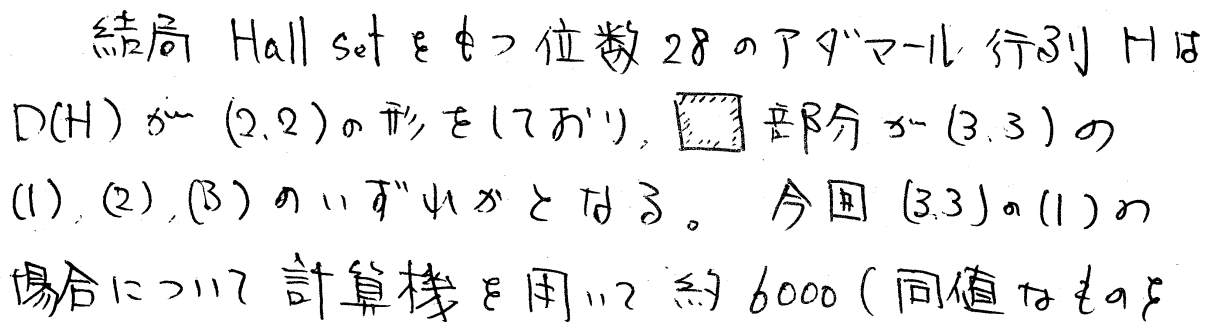 結局 Hall set をもつ位数 28 のアダマール行列 H は
D(H) が (2.2) の形をしており, 部分が (3.3) の
(1), (2), (3) のいずれかとなる。 今回 (3.3) の (1) の
場合について計算機を用いて約 6000 (同値なものを